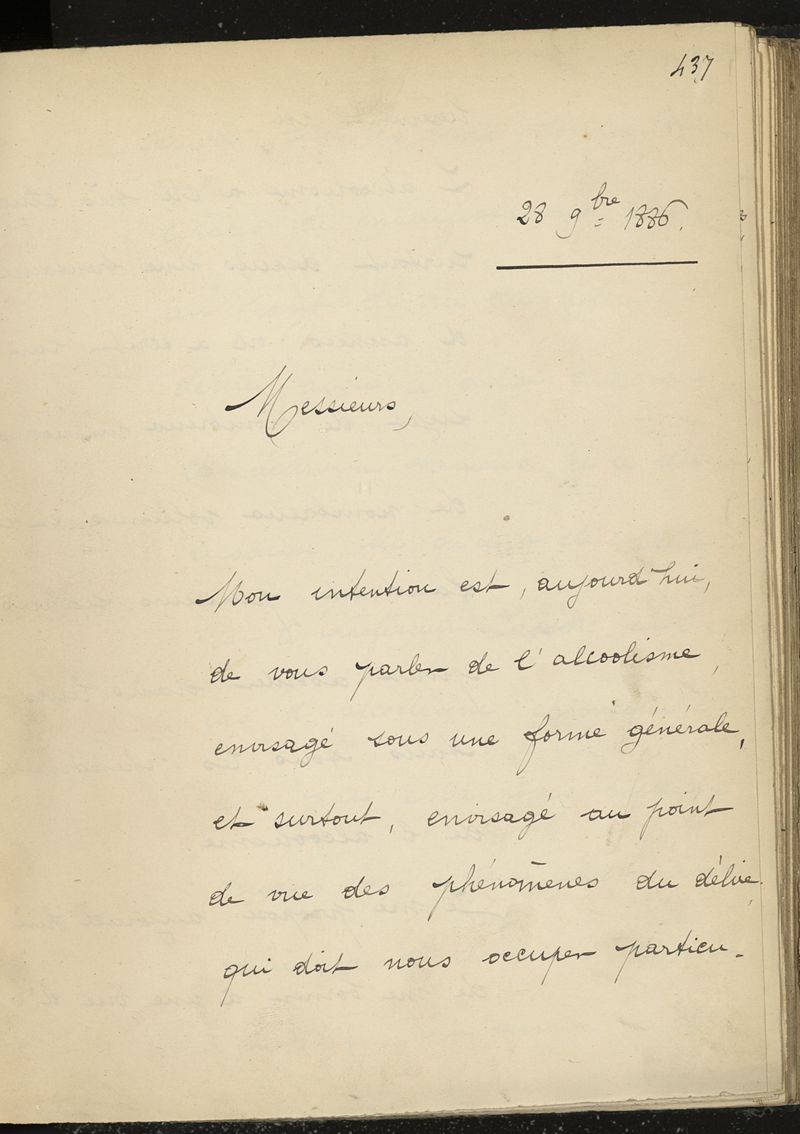 437
28 9bre 1886.
Messieurs,
Mon intention est, aujourd'hui,
de vous parler de l'alcoolisme,
envisagé sous une forme générale,
et surtout, envisagé au point
de vue des phénomènes du délire,
qui doit nous occuper particu-